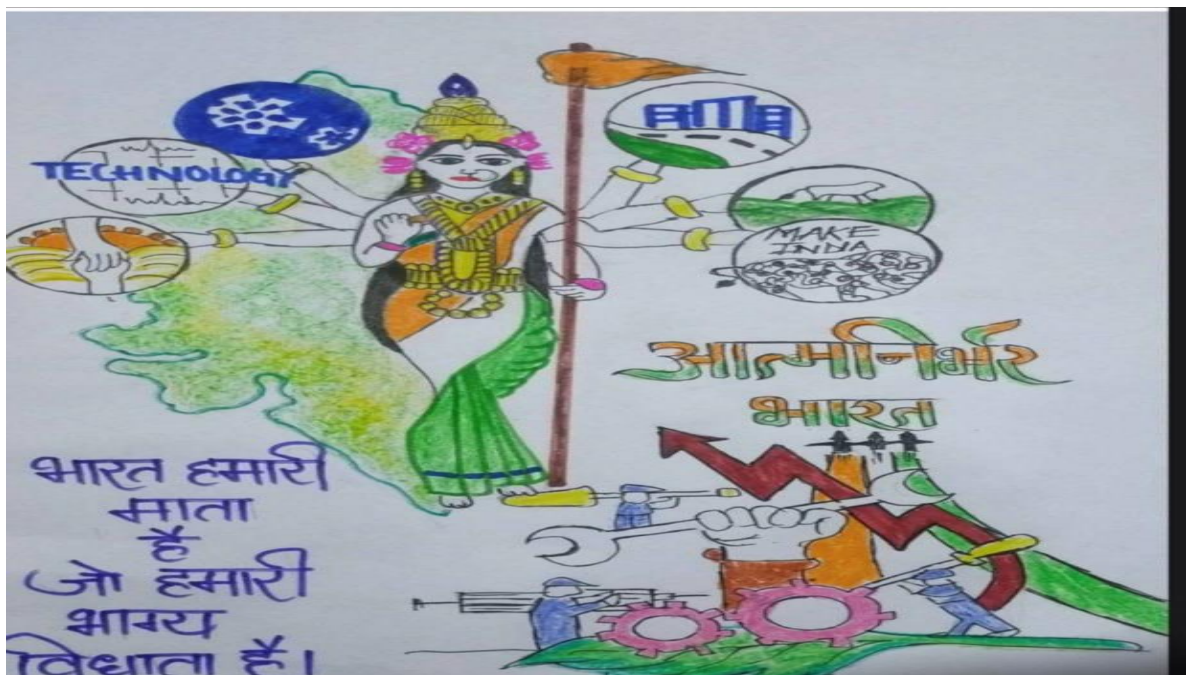 TECHNOLOGY
MAKE
INDIA
आत्मनिर्भर
भारत
भारत हमारी
माता
है
जो हमारी
भाग्य
विधाता है।